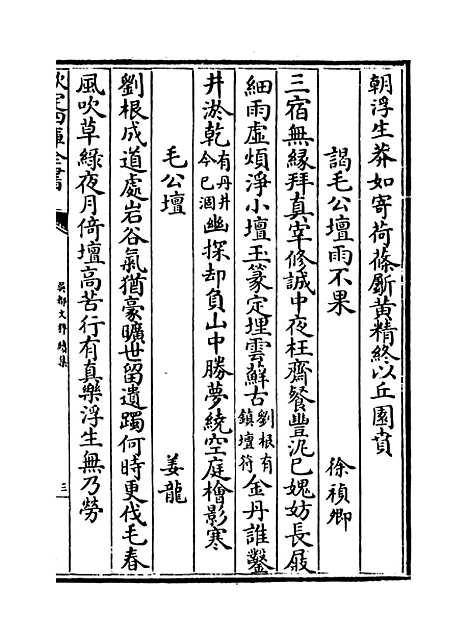 朝浮生莽如寄荷蓧斸黄精終以丘園賁
謁毛公壇雨不果 徐禎卿
三宿無縁拜真宰修誠中夜枉齋餐豐泥已媿妨長屐
細雨虚煩淨小壇玉篆定埋雲蘚古劉根有鎮壇符金丹誰鑿
井淤乾有丹井今已涸幽探却負山中勝夢繞空庭檜影寒
毛公壇 姜龍
劉根成道處岩谷氣猶豪曠世留遺躅何時更伐毛春
風吹草緑夜月倚壇高苦行有真樂浮生無乃勞
欽定四庫全書
吳都文粹續集
三